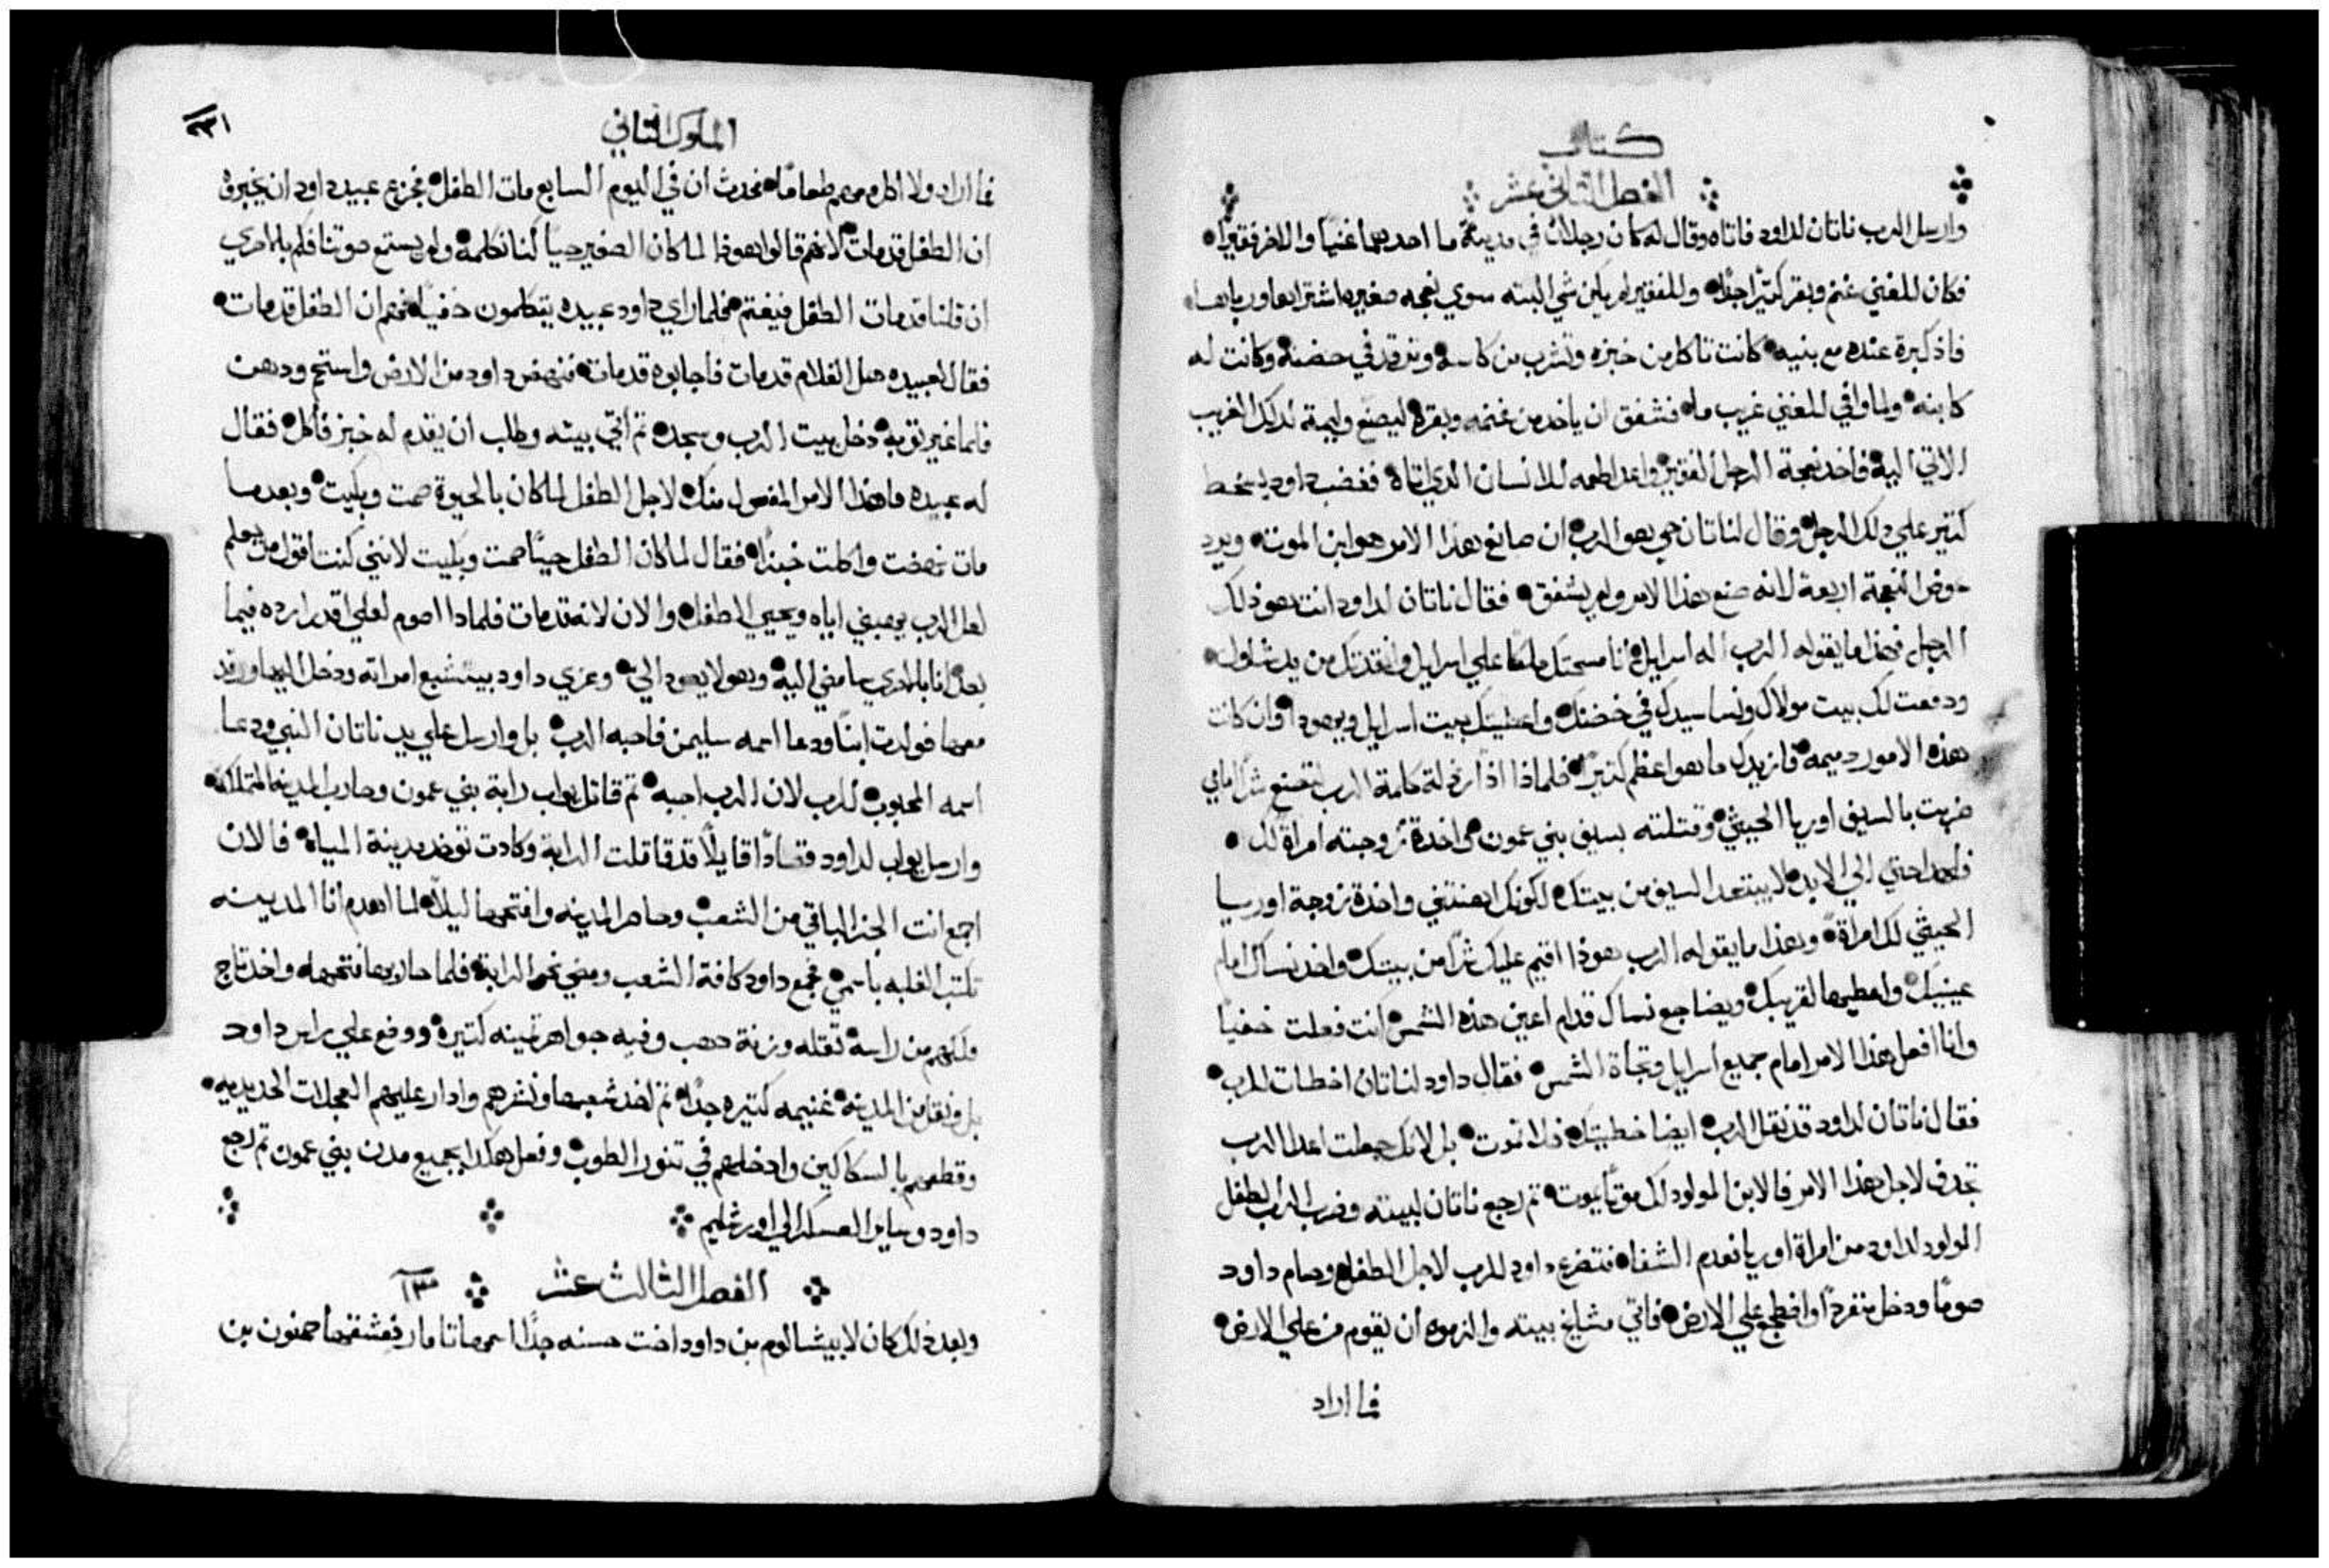 كتاب
الفصل الثاني عشر
وارسل الرب ناتان لداود فاتاه وقال له كان رجلان في مدينة ما احدهما غنيًا والاخر فقيرًا
فكان للغني غنم وبقر كثيرًا جدًا وللفقير لم يكن شي البته سوي نعجه صغيره اشتراها ورباها
كبرة عنده مع بنيه كانت تاكل من خبزه وتشرب من كاسه وترقد في حضنه وكانت له
كابنه ولما وافي للغني غريب ما فشفق ان ياخد من غنمه وبقره ليصنع وليمة لدلك الغريب
الاتي اليه فاخد نعجة الرجل الفقير واعد اطعمه للانسان الدي اتاه فغضب داود بسخط
كتير علي دلك الرجل وقال لناتان حي هو الرب ان صانع هذا الامر هو ابن الموت ويرد
عوض النعجة اربعة لانه صنع هذا الامر ولم يشفق فقال ناتان لداود انت هو ذلك
الرجل فهذا ما يقوله الرب اله اسرايل انا مسحتك ملكًا علي اسرايل وانقدتك من يد شاول
ودفعت لك بيت مولاك ونسا سيدك في حضنك واعطيتك بيت اسرايل ويهودا وان كانت
هذه الامور دميمه فازيدك ما هو اعظم كتيرًا فلماذا اذًا رذلة كلمة الرب لتصنع شرًا امامي
ضربت بالسيف اوريا الحيثي وقتلته بسيف بني عمون واخدة زوجته امراة لك
فلهدا حتي الي الابد لا يبتعد السيف من بيتك لكونك اهنتني واخدة زوجة اوريا
الحيثي لك امراة وهذا ما يقوله الرب هوذا اقيم عليك شرًا من بيتك واخد نساك امام
عينيك واعطيها لقريبك ويضاجع نساك قدام اعين هذه الشمس انت فعلت خفيًا
وانا افعل هذا الامر امام جميع اسرايل وتجاة الشمس فقال داود لناتان اخطات للرب
فقال ناتان لداود قد نقل الرب ايضا خطيتك فلا تموت بل لانك جعلت اعدا الرب
تجدف لاجل هذا الامر فالابن المولود لك موتًا يموت تم رجع ناتان لبيته وضرب الرب الطفل
المولود لداود من امراة اوريا نعدم الشفا فتضرع داود للرب لاجل الطفل وصام داود
صومًا ودخل منفردًا واضطجع علي الارض فاتي مشايخ بيته والزموه ان يقوم من علي الارض
فما اراد
الملوك التاني
فما اراد ولا اكل معهم طعامًا فحدث ان في اليوم السابع مات الطفل فجزع عبيد داود ان يخبروه
ان الطفل قد مات لانهم قالوا هوذا لما كان الصغير حيًا كنا نكلمه ولم يستمع صوتنا فكم بالحري
ان قلنا قد مات الطفل فيغتم فلما راي داود عبيده يتكلمون خفيًا فهم ان الطفل قد مات
فقال لعبيده هل الغلام قد مات فاجابوه قد مات فنهض داود من الارض واستحم ودهن
فلما غير توبه دخل بيت الرب وسجد تم اتي بيته وطلب ان يقدم له خبز فاكل فقال
له عبيده ما هذا الامر المفعول منك لاجل الطفل لما كان بالحيوة صمت وبكيت وبعدما
مات نهضت واكلت خبزًا فقال لما كان الطفل حيًا صمت وبكيت لانني كنت اقول من يعلم
لعل الرب يوهبني اياه ويحيي الطفل والان لانه قد مات فلمادا اصوم لعلي اقدر ارده فيما
بعد انا بالحري ماضي اليه وهو لا يعود الي وعزي داود بيتشبع امراته ودخل اليها ورقد
معها فولدت ابنًا ودعا اسمه سليمن فاحبه الرب بل وارسل علي يد ناتان النبي ودعا
اسمه المحبوب للرب لان الرب احبه تم قاتل يواب رابة بني عمون وحارب المدينه المتملكه
وارسل يواب لداود قصادًا قايلًا قد قاتلت الرابة وكادت توخد مدينة المياه فالان
اجمع انت الجزا الباقي من الشعب وحاصر المدينه وافتحها ليلا لما اهدم انا المدينه
تكتب الغلبه باسمي فجمع داود كافة الشعب ومضي نحو الرابة فلما حاربها فتحها واخد تاج
ملكهم من راسه تقله وزنة دهب وفيه جواهر تمينه كتيرة ووضع علي راس داود
بل ونقل من المدينه غنيمه كتيره جدًا تم اخد شعبها ونشرهم وادار عليهم العجلات الحديديه
وقطعهم بالسكاكين وادخلهم في تنور الطوب وفعل هكدا بجميع مدن بني عمون تم رجع
داود وساير العسكر الي اورشليم
الفصل الثالث عشر ١٣
وبعد ذلك كان لابيشالوم بن داود اخت حسنه جدًا اسمها تامار فعشقها حمنون بن